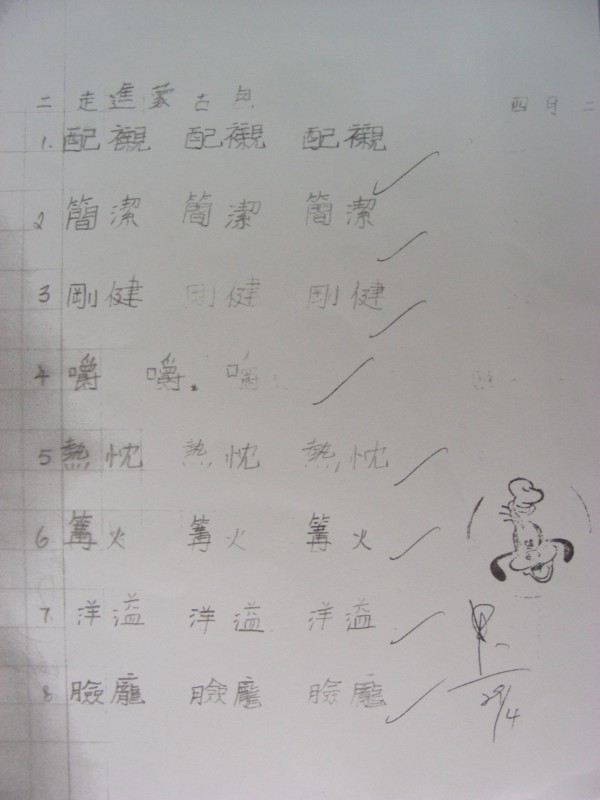 二 走進蒙古包 四月二
1. 配襯 配襯 配襯
2 簡潔 簡潔 簡潔
3 剛健 剛健 剛健
4 嚼 嚼. 嚼
5 熱忱 熱忱 熱忱
6 篝火 篝火 篝火
7. 洋溢 洋溢 洋溢
8 臉龐 臉龐 臉龐
甲-
29/4